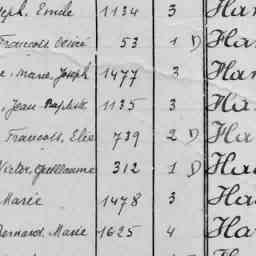 seph, Emile 1134 3 Ha
François Désiré 53 1 D Ha
e, Marie, Joseph 1477 3 Ha
, Jean Baptiste 1135 3 Ha
François, Elie 739 2 D Ha
Victor, Guillaume 312 1 D Ha
Marie 1478 3 Ha
Bernard, Marie 1625 4 Ha